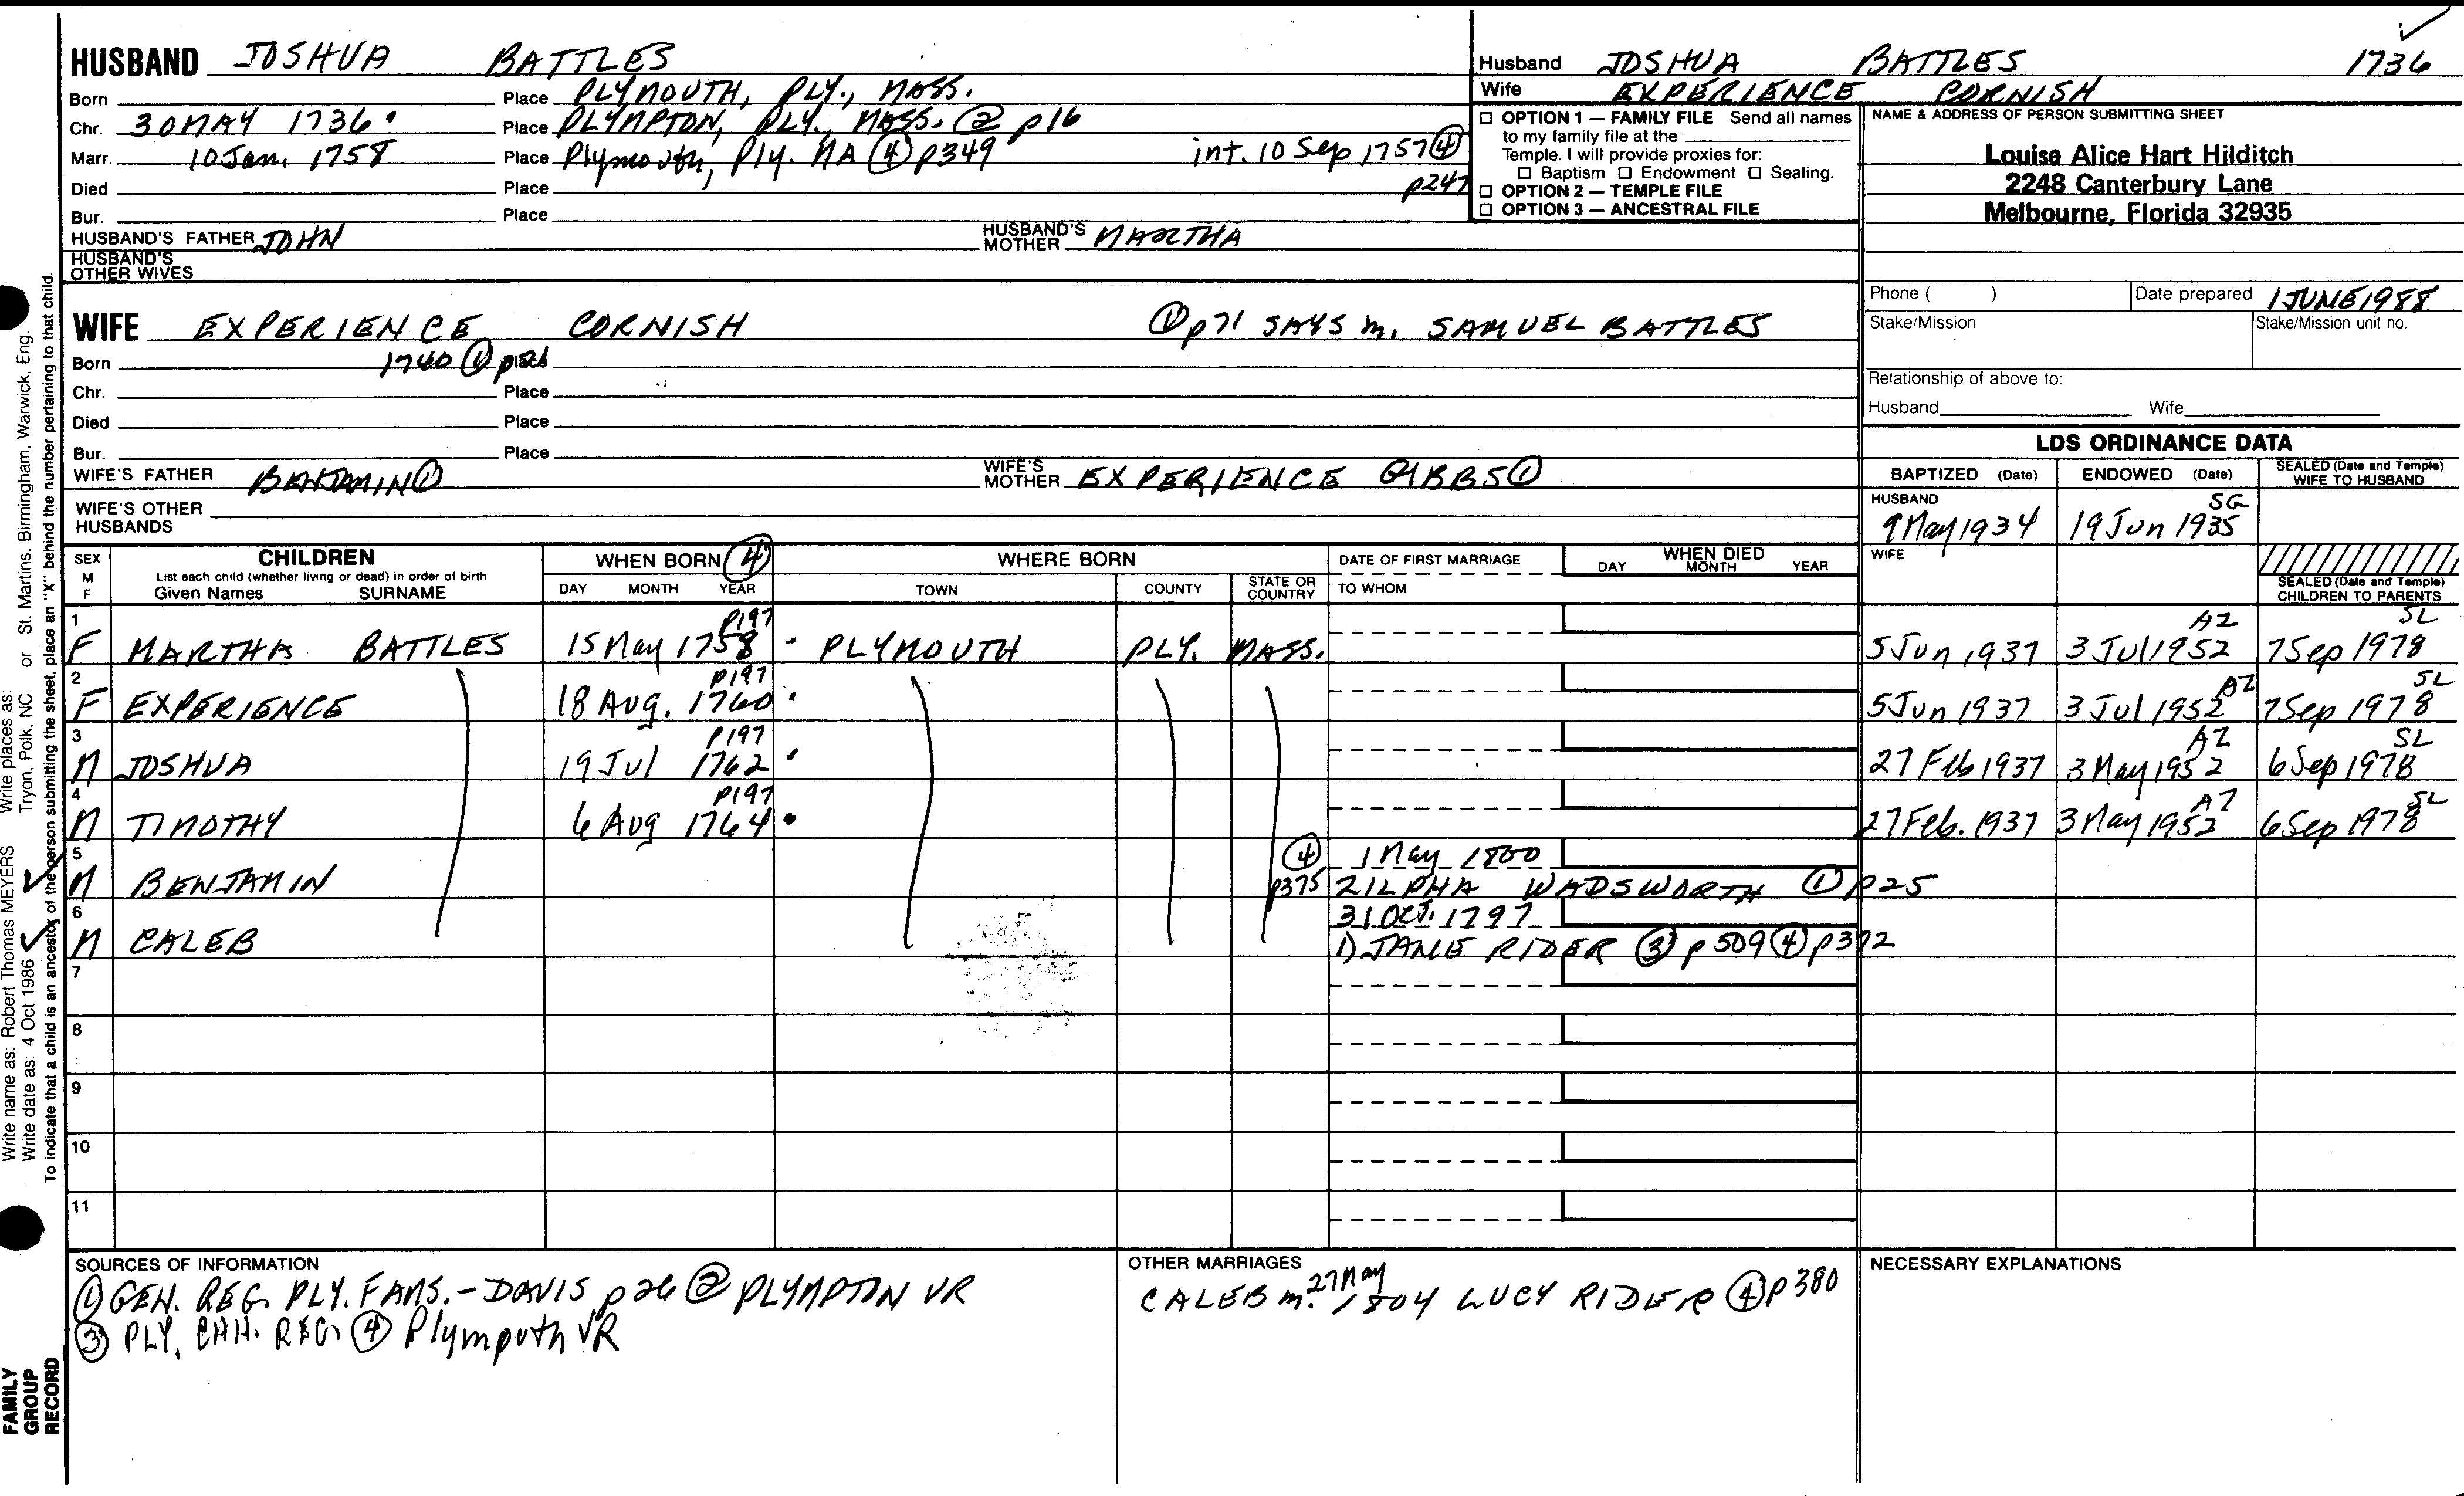 HUSBAND JOSHUA BATTLES
Born Place PLYMOUTH, PLY., MASS.
Chr. 30 MAY 1736 Place PLYMPTON, PLY., MASS. ② p16
Marr. 10 Jan. 1758 Place Plymouth, Ply. MA ④ p349 int. 10 Sep 1757 ④ p247
Died Place
Bur. Place
HUSBAND'S FATHER JOHN HUSBAND'S MOTHER MARTHA
HUSBAND'S OTHER WIVES
Husband JOSHUA BATTLES 1736
Wife EXPERIENCE CORNISH
☐ OPTION 1 — FAMILY FILE Send all names
to my family file at the
Temple. I will provide proxies for:
☐ Baptism ☐ Endowment ☐ Sealing.
☐ OPTION 2 — TEMPLE FILE
☐ OPTION 3 — ANCESTRAL FILE
NAME & ADDRESS OF PERSON SUBMITTING SHEET
Louise Alice Hart Hilditch
2248 Canterbury Lane
Melbourne, Florida 32935
Phone ( ) Date prepared 1 JUNE 1988
Stake/Mission Stake/Mission unit no.
Relationship of above to:
Husband Wife
WIFE EXPERIENCE CORNISH ① p71 SAYS m. SAMUEL BATTLES
Born 1740 ① p26 Place
Chr. Place
Died Place
Bur. Place
WIFE'S FATHER BENJAMIN ① WIFE'S MOTHER EXPERIENCE GIBBS ①
WIFE'S OTHER HUSBANDS
LDS ORDINANCE DATA
BAPTIZED (Date) ENDOWED (Date) SEALED (Date and Temple) WIFE TO HUSBAND
HUSBAND 9 May 1934 19 Jun 1935 SG
WIFE
SEALED (Date and Temple) CHILDREN TO PARENTS
SEX M F CHILDREN WHEN BORN ④ WHERE BORN DATE OF FIRST MARRIAGE WHEN DIED
List each child (whether living or dead) in order of birth
Given Names SURNAME DAY MONTH YEAR TOWN COUNTY STATE OR COUNTRY TO WHOM DAY MONTH YEAR
1 F MARTHA BATTLES 15 May 1758 p197 PLYMOUTH PLY. MASS. 5 Jun 1937 3 Jul 1952 AZ 7 Sep 1978 SL
2 F EXPERIENCE 18 Aug. 1760 p197 5 Jun 1937 3 Jul 1952 AZ 7 Sep 1978 SL
3 M JOSHUA 19 Jul 1762 p197 27 Feb 1937 3 May 1952 AZ 6 Sep 1978 SL
4 M TIMOTHY 6 Aug 1764 p197 27 Feb. 1937 3 May 1952 AZ 6 Sep 1978 SL
5 M BENJAMIN ④ p375 1 May 1800
ZILPHA WADSWORTH ① p25
6 M CALEB 31 Oct. 1797
1) JANE RIDER ③ p509 ④ p372
7
8
9
10
11
SOURCES OF INFORMATION
① GEN. REG. PLY. FAMS. - DAVIS p26 ② PLYMPTON VR
③ PLY. CHH. REC. ④ Plymouth VR
OTHER MARRIAGES
CALEB m. 27 May 1804 LUCY RIDER ④ p380
NECESSARY EXPLANATIONS
Write name as: Robert Thomas MEYERS Write places as:
Write date as: 4 Oct 1986 Tryon, Polk, NC or St. Martins, Birmingham, Warwick, Eng.
To indicate that a child is an ancestor of the person submitting the sheet, place an "X" behind the number pertaining to that child.
FAMILY
GROUP
RECORD